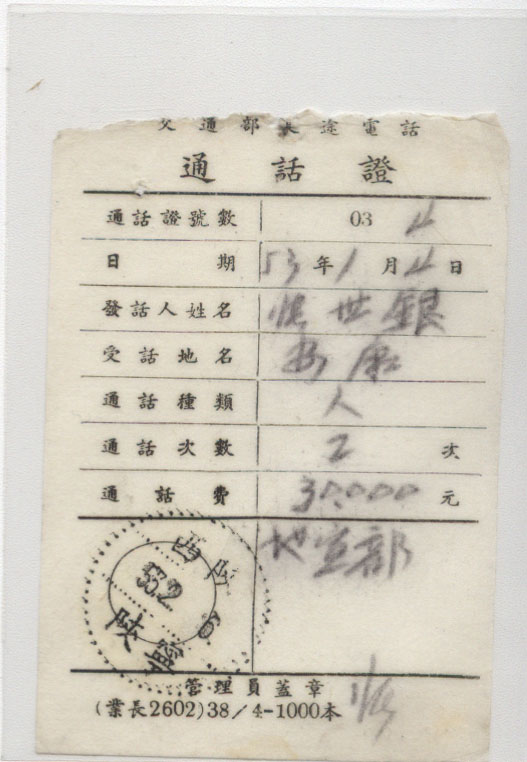 交通部長途電話
通話證
通話證號數 03 4
日期 53年1月4日
發話人姓名 世銀
受話地名 安康
通話種類 人
通話次數 2 次
通話費 30,000 元
地宣部
陝西
53.2
管理員蓋章
(業長2602)38/4-1000本